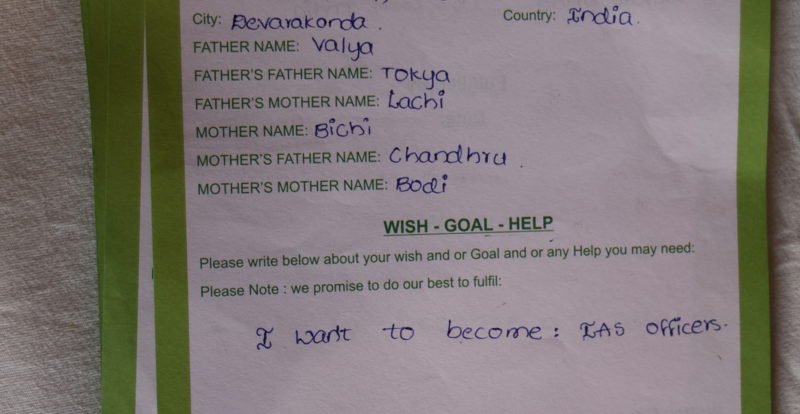 City: Devarakonda. Country: India.
FATHER NAME: Valya
FATHER'S FATHER NAME: Tokya
FATHER'S MOTHER NAME: Lachi
MOTHER NAME: Bichi
MOTHER'S FATHER NAME: Chandhru.
MOTHER'S MOTHER NAME: Bodi
WISH - GOAL - HELP
Please write below about your wish and or Goal and or any Help you may need:
Please Note : we promise to do our best to fulfil:
I want to become : IAS officers.